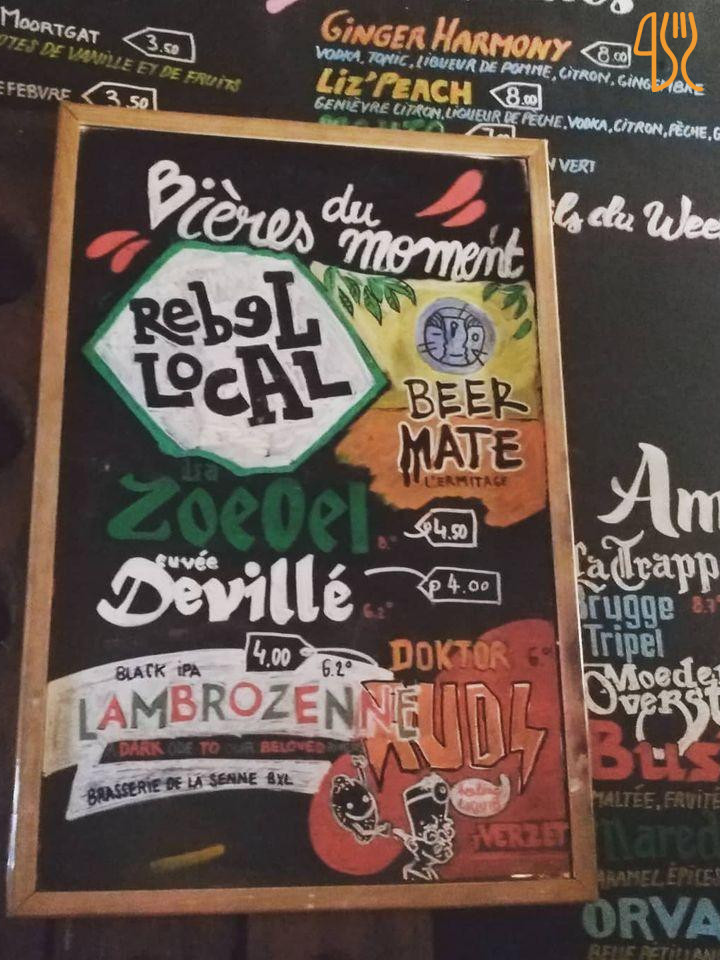 MOORTGAT 3.50
NOTES DE VANILLE ET DE FRUITS
LEFEBVRE 3.50
GINGER HARMONY 8.00
VODKA, TONIC, LIQUEUR DE POMME, CITRON, GINGEMBRE
LIZ'PEACH 8.00
GENIÈVRE CITRON, LIQUEUR DE PÊCHE, VODKA, CITRON, PÊCHE, G
MOJITO
VERT
ils du Wee
Bières du
moment
Rebel
Local
BEER
MATE
L'ERMITAGE
La
ZoeOel
8.° 4.50
cuvée
Devillé
6.2° 4.00
4.00
BLACK IPA 6.2°
LAMBROZENNE
DARK ODE TO OUR BELOVED
BRASSERIE DE LA SENNE BXL
DOKTOR 6.°
RUDI
VERZET
Am
La Trapp
Brugge 8.7°
Tripel
Moeder
Overst
Bus
MALTÉE, FRUITÉ
Mared
CARAMEL, ÉPICES
ORVA